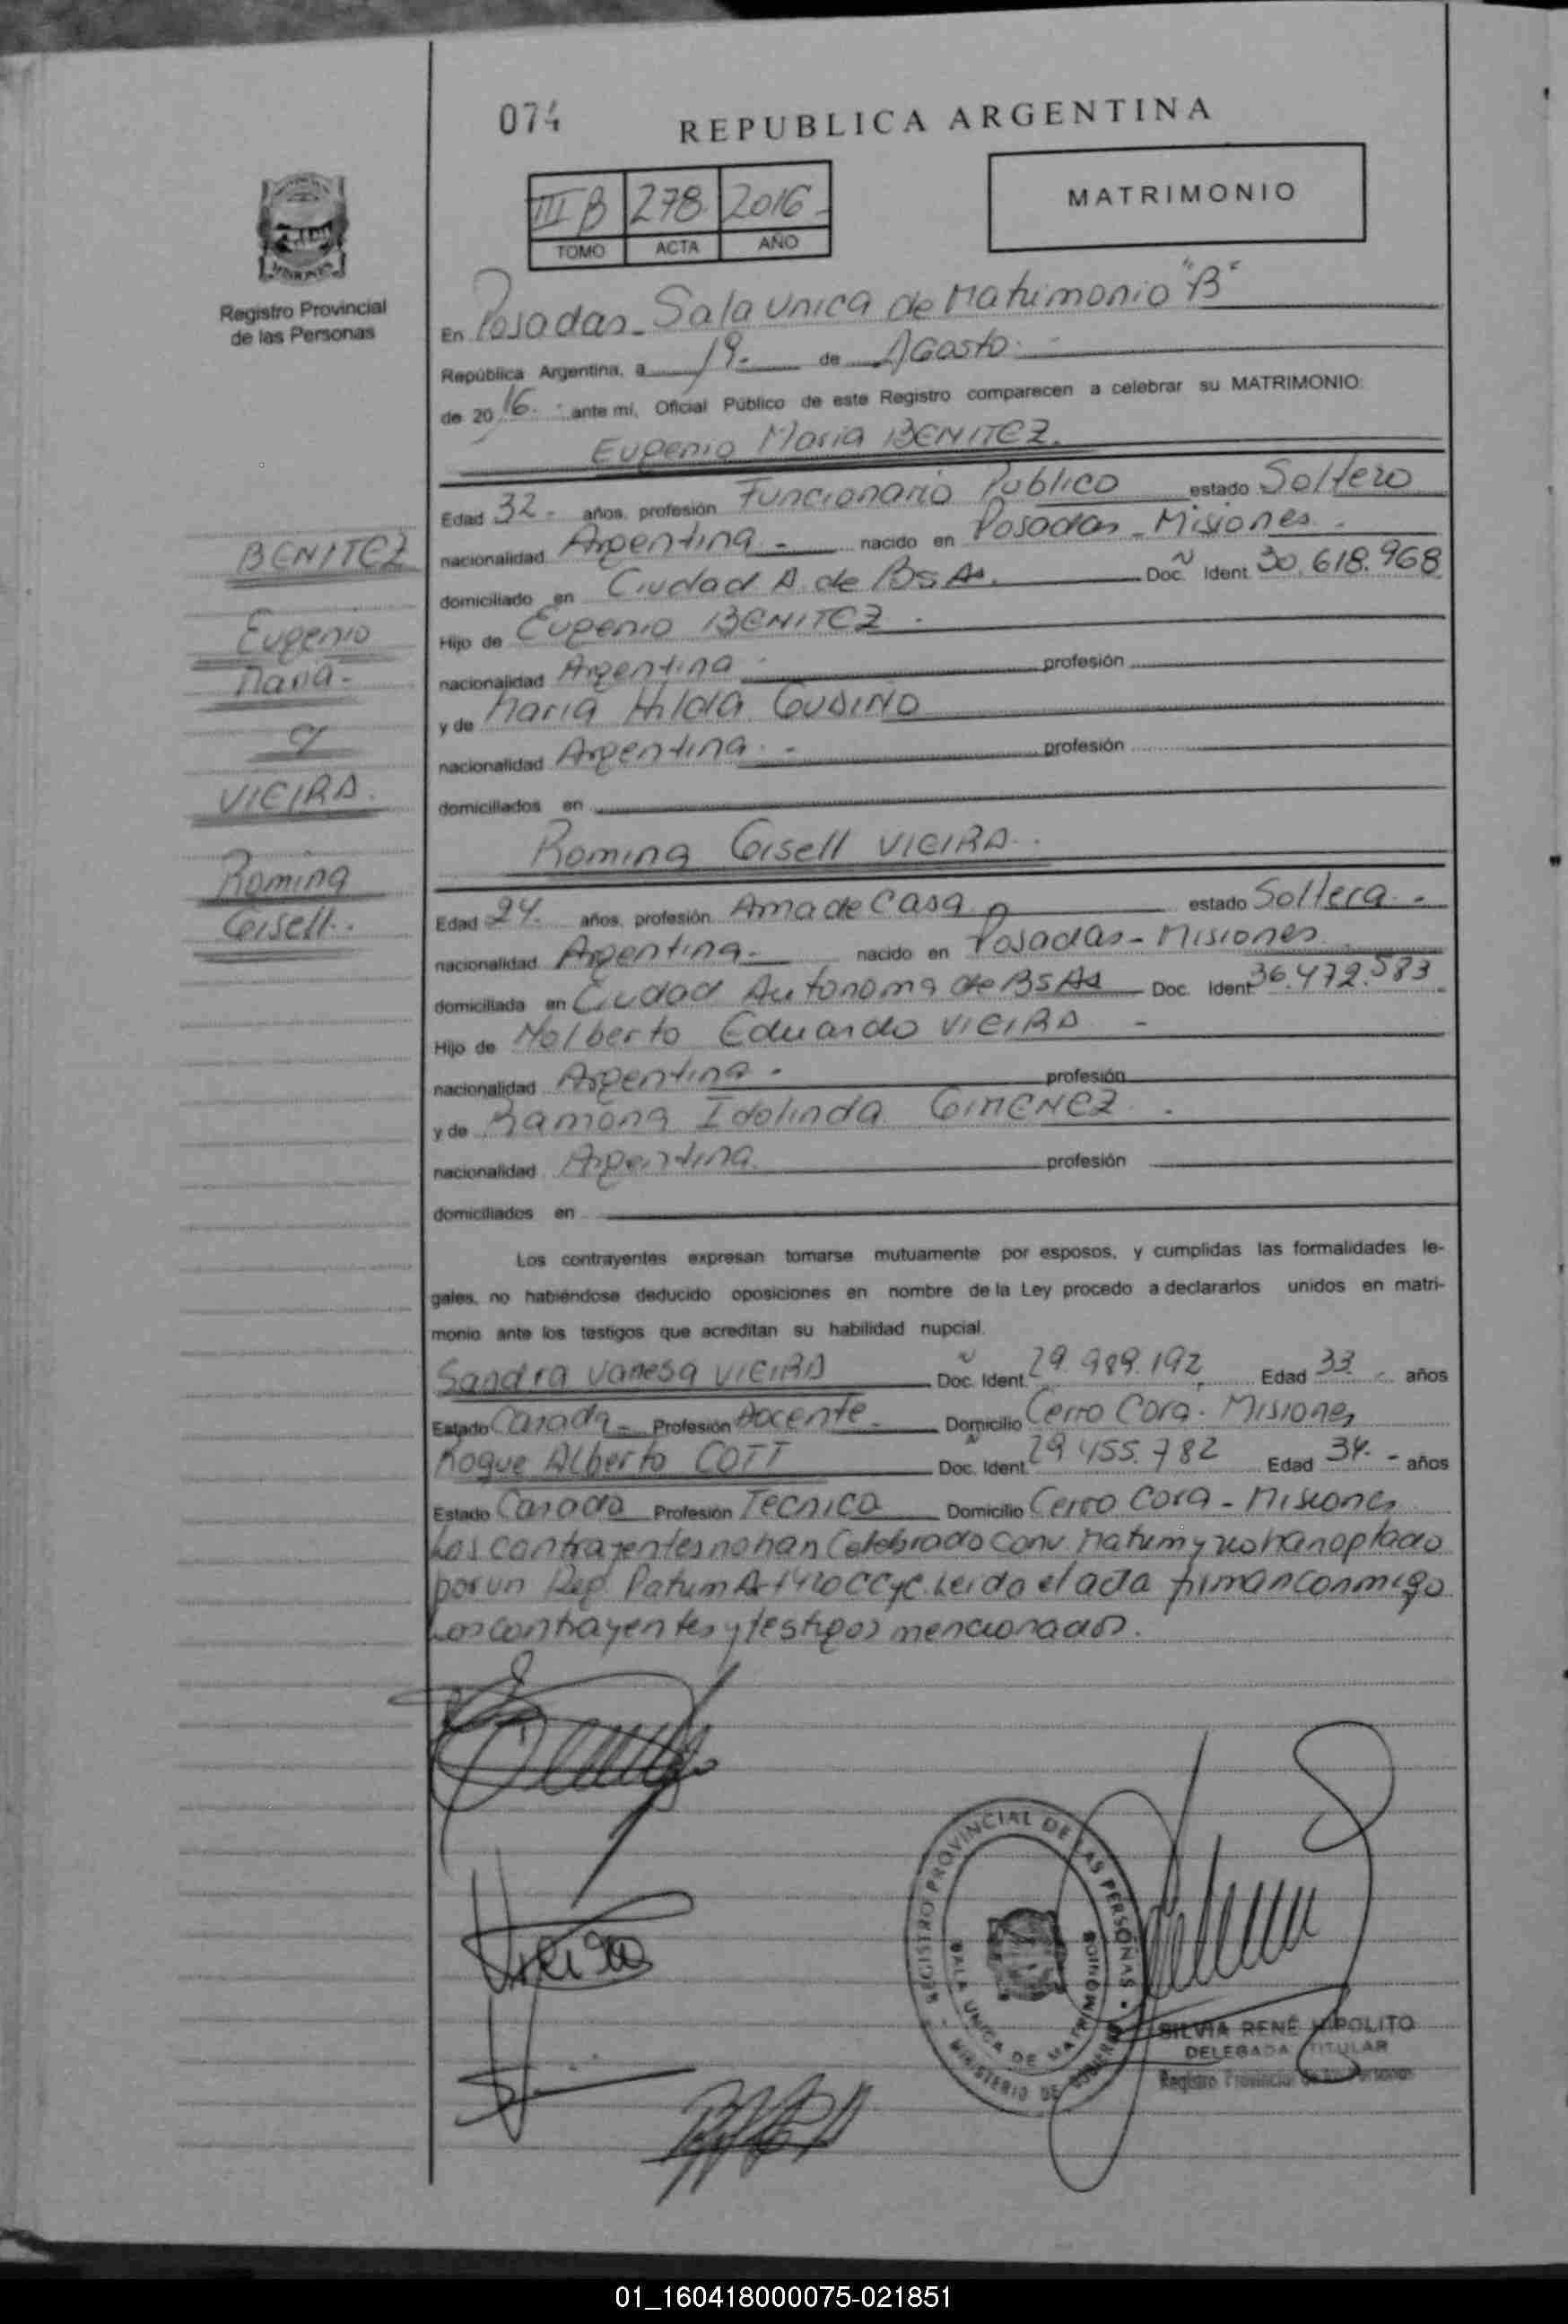 074
REPUBLICA ARGENTINA
III B 278. 2016-
TOMO ACTA AÑO
MATRIMONIO
MISIONES
Registro Provincial
de las Personas
En Posadas - Sala Unica de Matrimonio "B"
República Argentina, a 19. de Agosto. -
de 20 16. - ante mí, Oficial Público de este Registro comparecen a celebrar su MATRIMONIO:
Eugenio Maria BENITEZ.
Edad 32 - años, profesión Funcionario Publico estado Soltero
nacionalidad Argentina - nacido en Posadas - Misiones -
domiciliado en Ciudad A. de Bs As. Doc. Ident. 30.618.968
Hijo de Eugenio BENITEZ -
nacionalidad Argentina - profesión
y de Maria Hilda GUDIÑO
nacionalidad Argentina - profesión
domicilados en
BENITEZ
Eugenio
Maria -
y
VIEIRA.
Romina
Gisell.
Romina Gisell VIEIRA.
Edad 24. años, profesión Ama de Casa estado Soltera -
nacionalidad Argentina - nacido en Posadas - Misiones
domiciliada en Ciudad Autonoma de Bs As Doc. Ident. 36.472.583
Hijo de Nolberto Eduardo VIEIRA -
nacionalidad Argentina - profesión
y de Ramona Idolinda GIMENEZ -
nacionalidad Argentina profesión
domiciliados en
Los contrayentes expresan tomarse mutuamente por esposos, y cumplidas las formalidades le-
gales, no habiéndose deducido oposiciones en nombre de la Ley procedo a declararlos unidos en matri-
monio ante los testigos que acreditan su habilidad nupcial.
Sandra Vanesa VIEIRA Doc. Ident. 29.989.192 Edad 33 - años
Estado Casada - Profesión Docente - Domicilio Cerro Cora - Misiones
Roque Alberto COTT Doc. Ident. 29.455.782 Edad 34. - años
Estado Casado Profesión Tecnico Domicilio Cerro Cora - Misiones
Los contrayentes no han Celebrado Conv. Matrim y no han optado
por un Reg. Patrim Art 420 CCyC. Leido el acta firman conmigo
Los contrayentes y testigos mencionados.
Vieira
REGISTRO PROVINCIAL DE LAS PERSONAS
MINISTERIO DE GOBIERNO
SALA UNICA DE MATRIMONIOS
SILVIA RENÉ HIPOLITO
DELEGADA TITULAR
Registro Provincial de las Personas
01_160418000075-021851